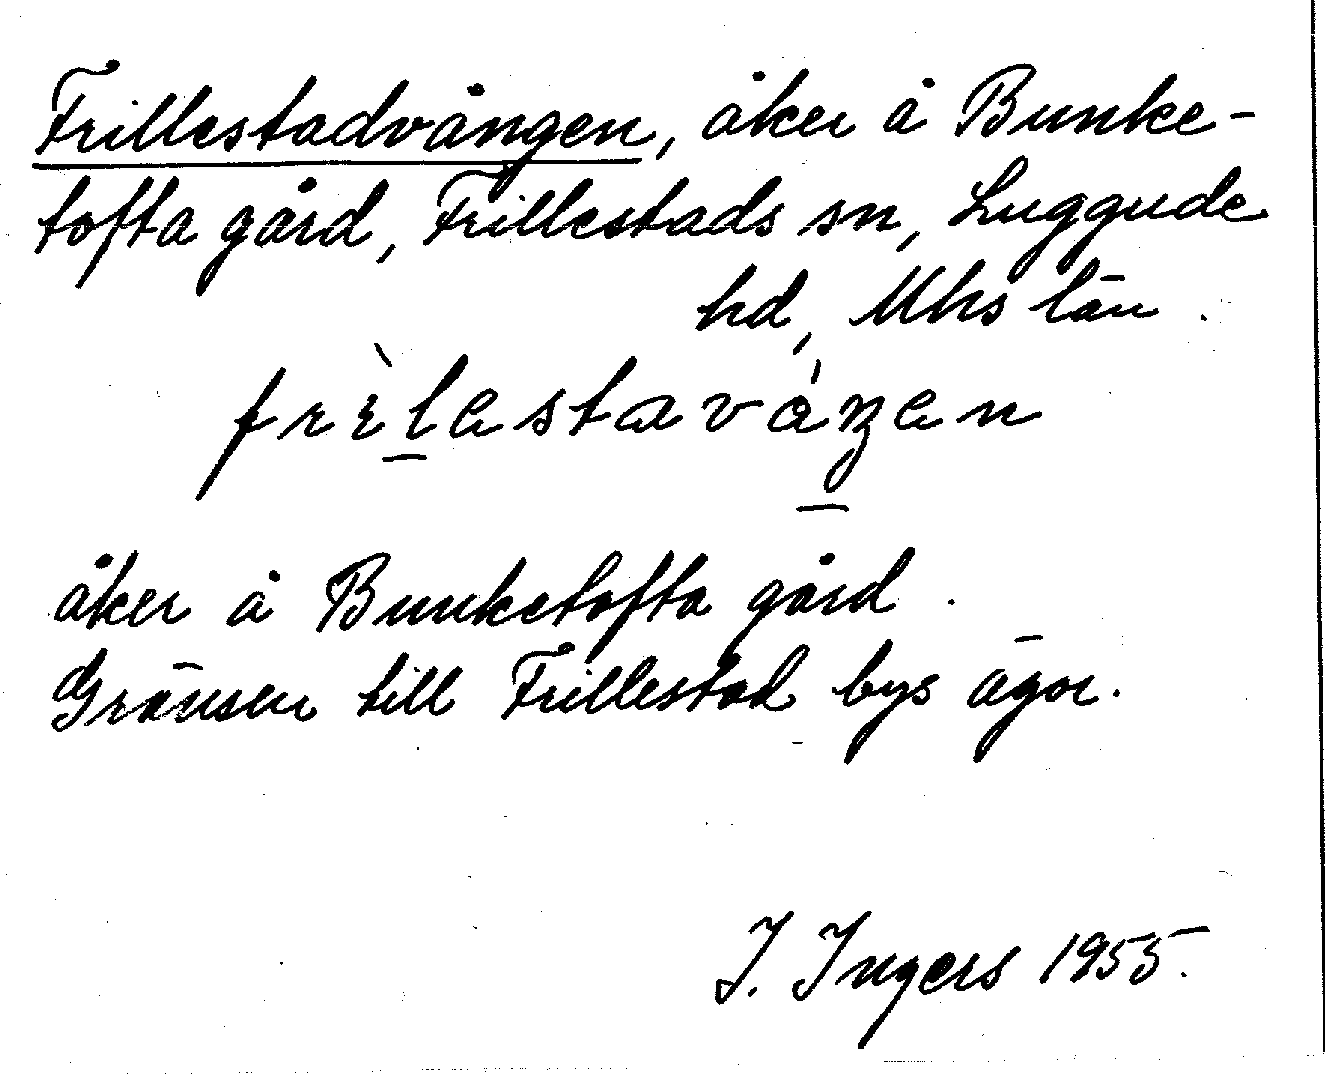 Frillestadvången, åker å Bunke-
tofta gård, Frillestads sn, Luggude
hd, Mhs län.
frìlestavåŋen
åker å Bunketofta gård.
Gränsen till Frillestad bys ägor.
I. Ingers 1955.